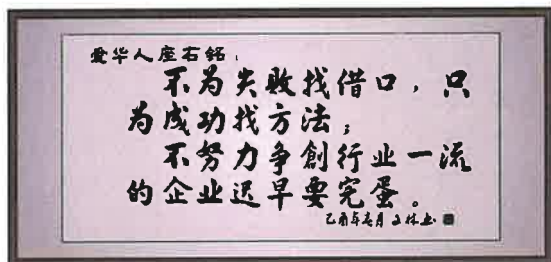 爱华人座右铭：
不为失败找借口，只
为成功找方法；
不努力争創行业一流
的企业迟早要完蛋。
乙酉年春月